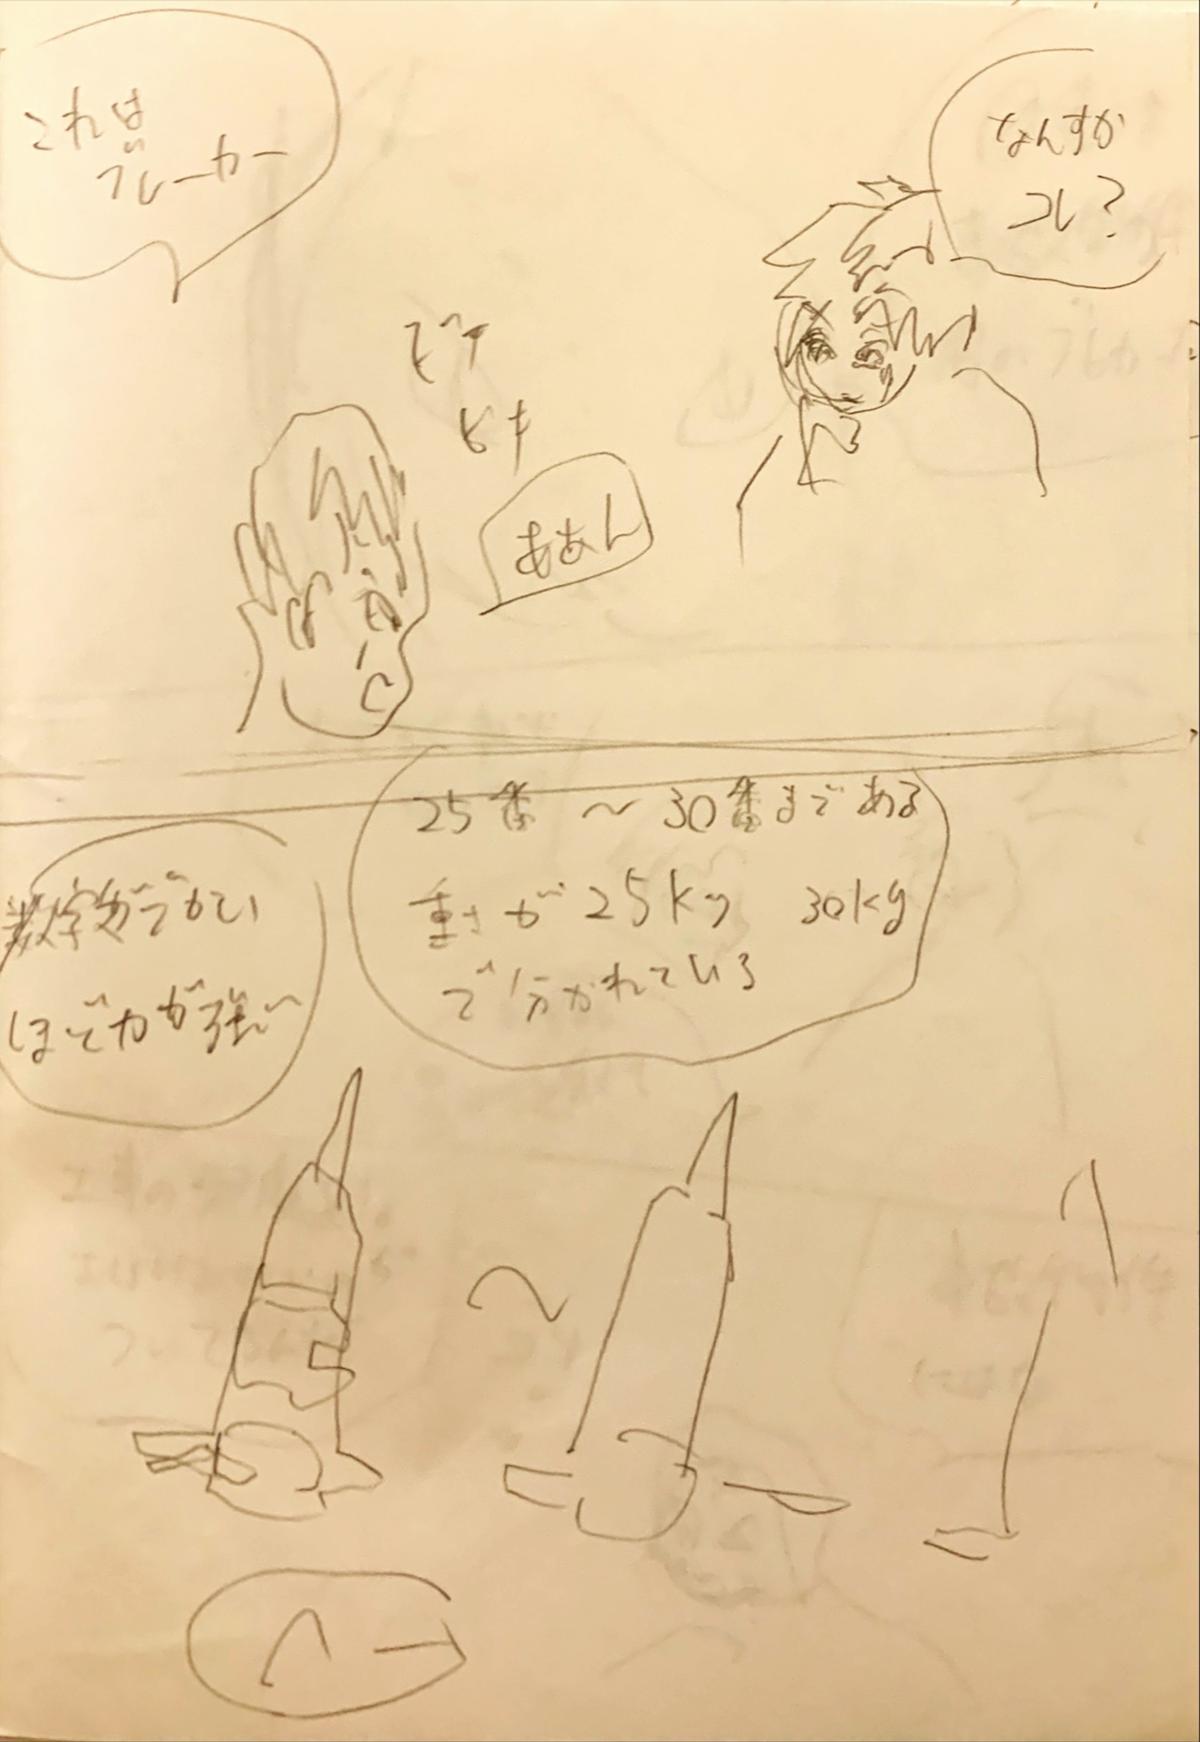 なんすか
コレ?
これは
ブレーカー
ピキ
ああん
25番 〜 30番まである
重さが25kg 30kg
で分かれている
数字がでかい
ほど力が強い
〜
へー